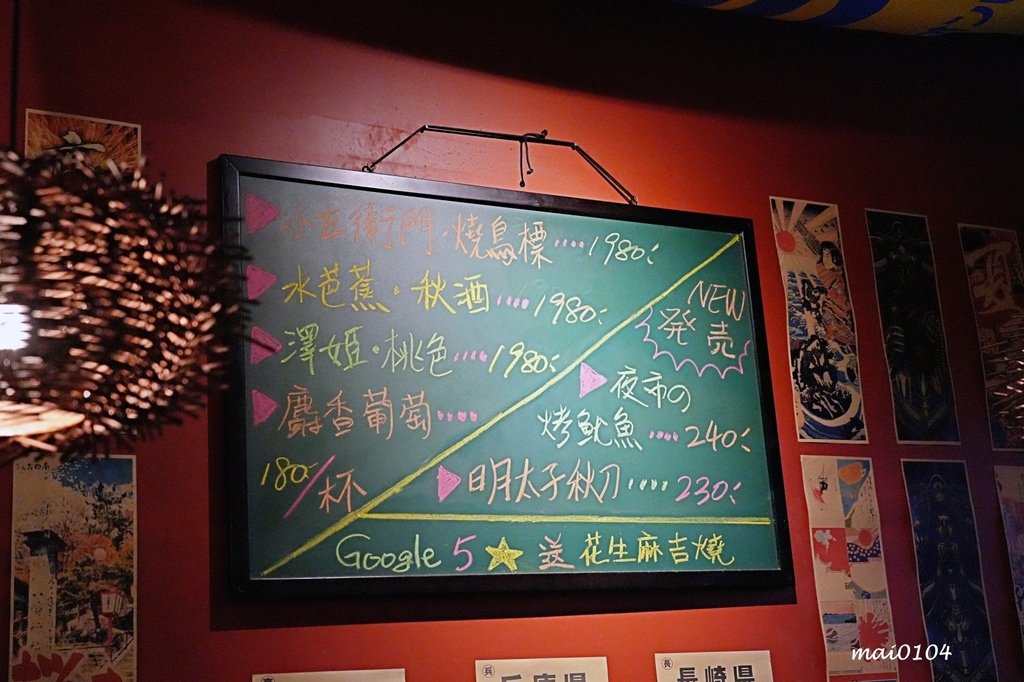 小左衛門・燒鳥標....1980:
水芭蕉・秋酒....1980:
澤姬・桃色....1980:
麝香葡萄....
180/杯
NEW
発売
夜市の
烤魷魚....240:
明太子秋刀....230:
Google 5★送 花生麻吉燒
兵 兵庫県
長 長崎県
mai0104